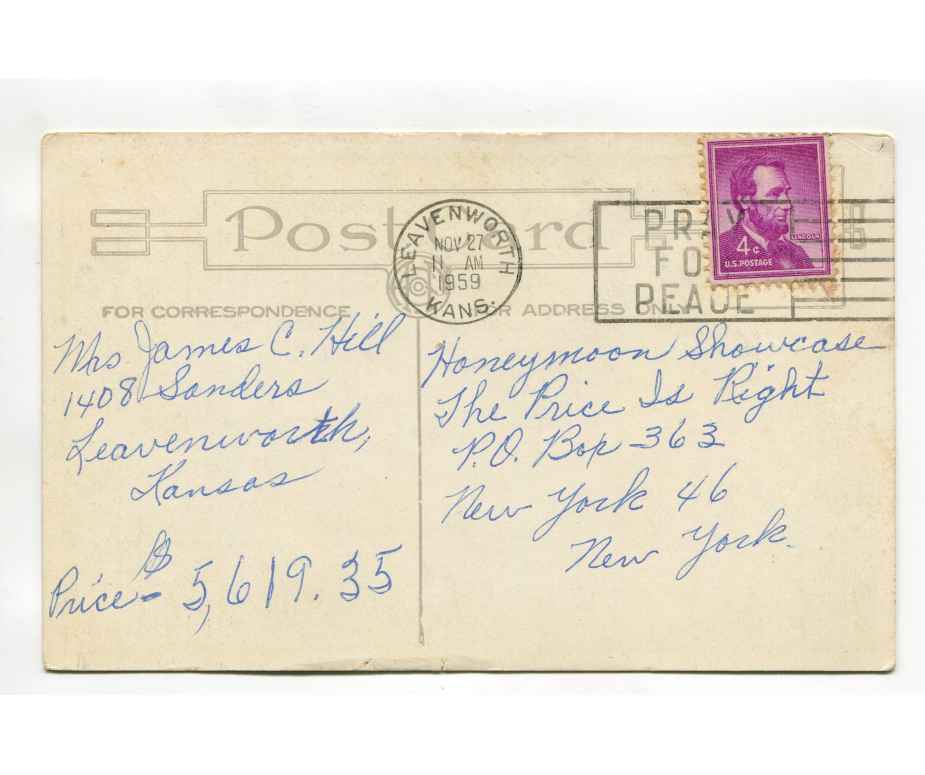 Post Card
LEAVENWORTH
NOV 27
11 AM
1959
KANS.
PRAY
FOR
PEACE
LINCOLN
4 c
U.S. POSTAGE
FOR CORRESPONDENCE
FOR ADDRESS ONLY
Mrs James C. Hill
1408 Sanders
Leavenworth,
Kansas
Price - $5,619.35
Honeymoon Showcase
The Price Is Right
P.O. Box 363
New York 46
New York.